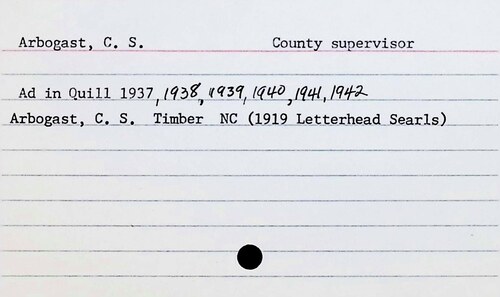 Arbogast, C. S. County supervisor
Ad in Quill 1937, 1938, 1939, 1940, 1941, 1942
Arbogast, C. S. Timber NC (1919 Letterhead Searls)